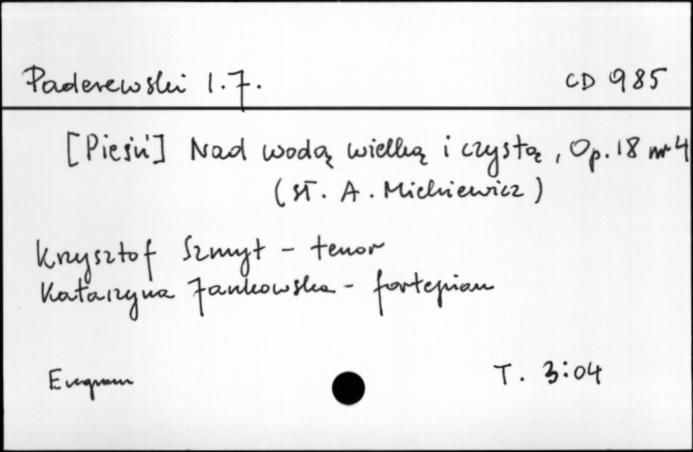 Paderewski I.J.
CD 985
[Pieśń] Nad wodą wielką i czystą, Op. 18 nr 4
(sł. A. Mickiewicz)
Krzysztof Szmyt - tenor
Katarzyna Jankowska - fortepian
T. 3:04